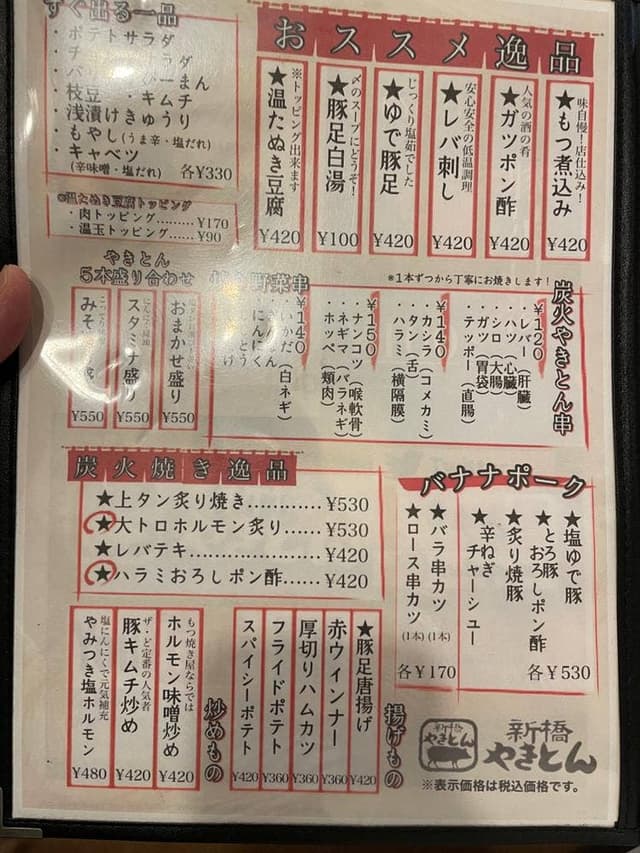 すぐ出る一品
・ポテトサラダ
枝豆・キムチ
・浅漬けきゅうり
・もやし(うま辛・塩だれ)
・キャベツ
(辛味噌・塩だれ) 各¥330
温たぬき豆腐トッピング
・肉トッピング………¥170
・温玉トッピング……¥90
おススメ逸品
味自慢!店仕込み!
★もつ煮込み
¥420
人気の酒の肴
★ガツポン酢
¥420
安心安全の低温調理
★レバ刺し
¥420
じっくり塩茹でした
★ゆで豚足
¥420
〆のスープにどうぞ!
★豚足白湯
¥100
※トッピング出来ます
★温たぬき豆腐
¥420
※1本ずつから丁寧にお焼きします!
炭火やきとん串
¥120
・レバー(肝臓)
・ハツ(心臓)
・シロ(大腸)
・ガツ(胃袋)
・テッポー(直腸)
¥140
・カシラ(コメカミ)
・タン(舌)
・ハラミ(横隔膜)
¥150
・ナンコツ(喉軟骨)
・ネギマ(バラネギ)
・ホッペ(頬肉)
野菜串
¥140
・いかだ(白ネギ)
・にんにく
やきとん
5本盛り合わせ
おまかせ盛り
¥550
スタミナ盛り
¥550
¥550
炭火焼き逸品
★上タン炙り焼き…………¥530
★大トロホルモン炙り……¥530
★レバテキ…………………¥420
★ハラミおろしポン酢……¥420
バナナポーク
★塩ゆで豚
★とろ豚
おろしポン酢
★炙り焼豚
★辛ねぎ
チャーシュー
各¥530
★バラ串カツ(1本)
★ロース串カツ(1本)
各¥170
揚げもの
★豚足唐揚げ
¥420
赤ウインナー
¥360
厚切りハムカツ
¥360
フライドポテト
¥360
スパイシーポテト
¥420
炒めもの
もつ焼き屋ならでは
ホルモン味噌炒め
¥420
ザ・ど定番の人気者
豚キムチ炒め
¥420
塩にんにくで元気補充
やみつき塩ホルモン
¥480
新橋
やきとん
新橋
やきとん
※表示価格は税込価格です。